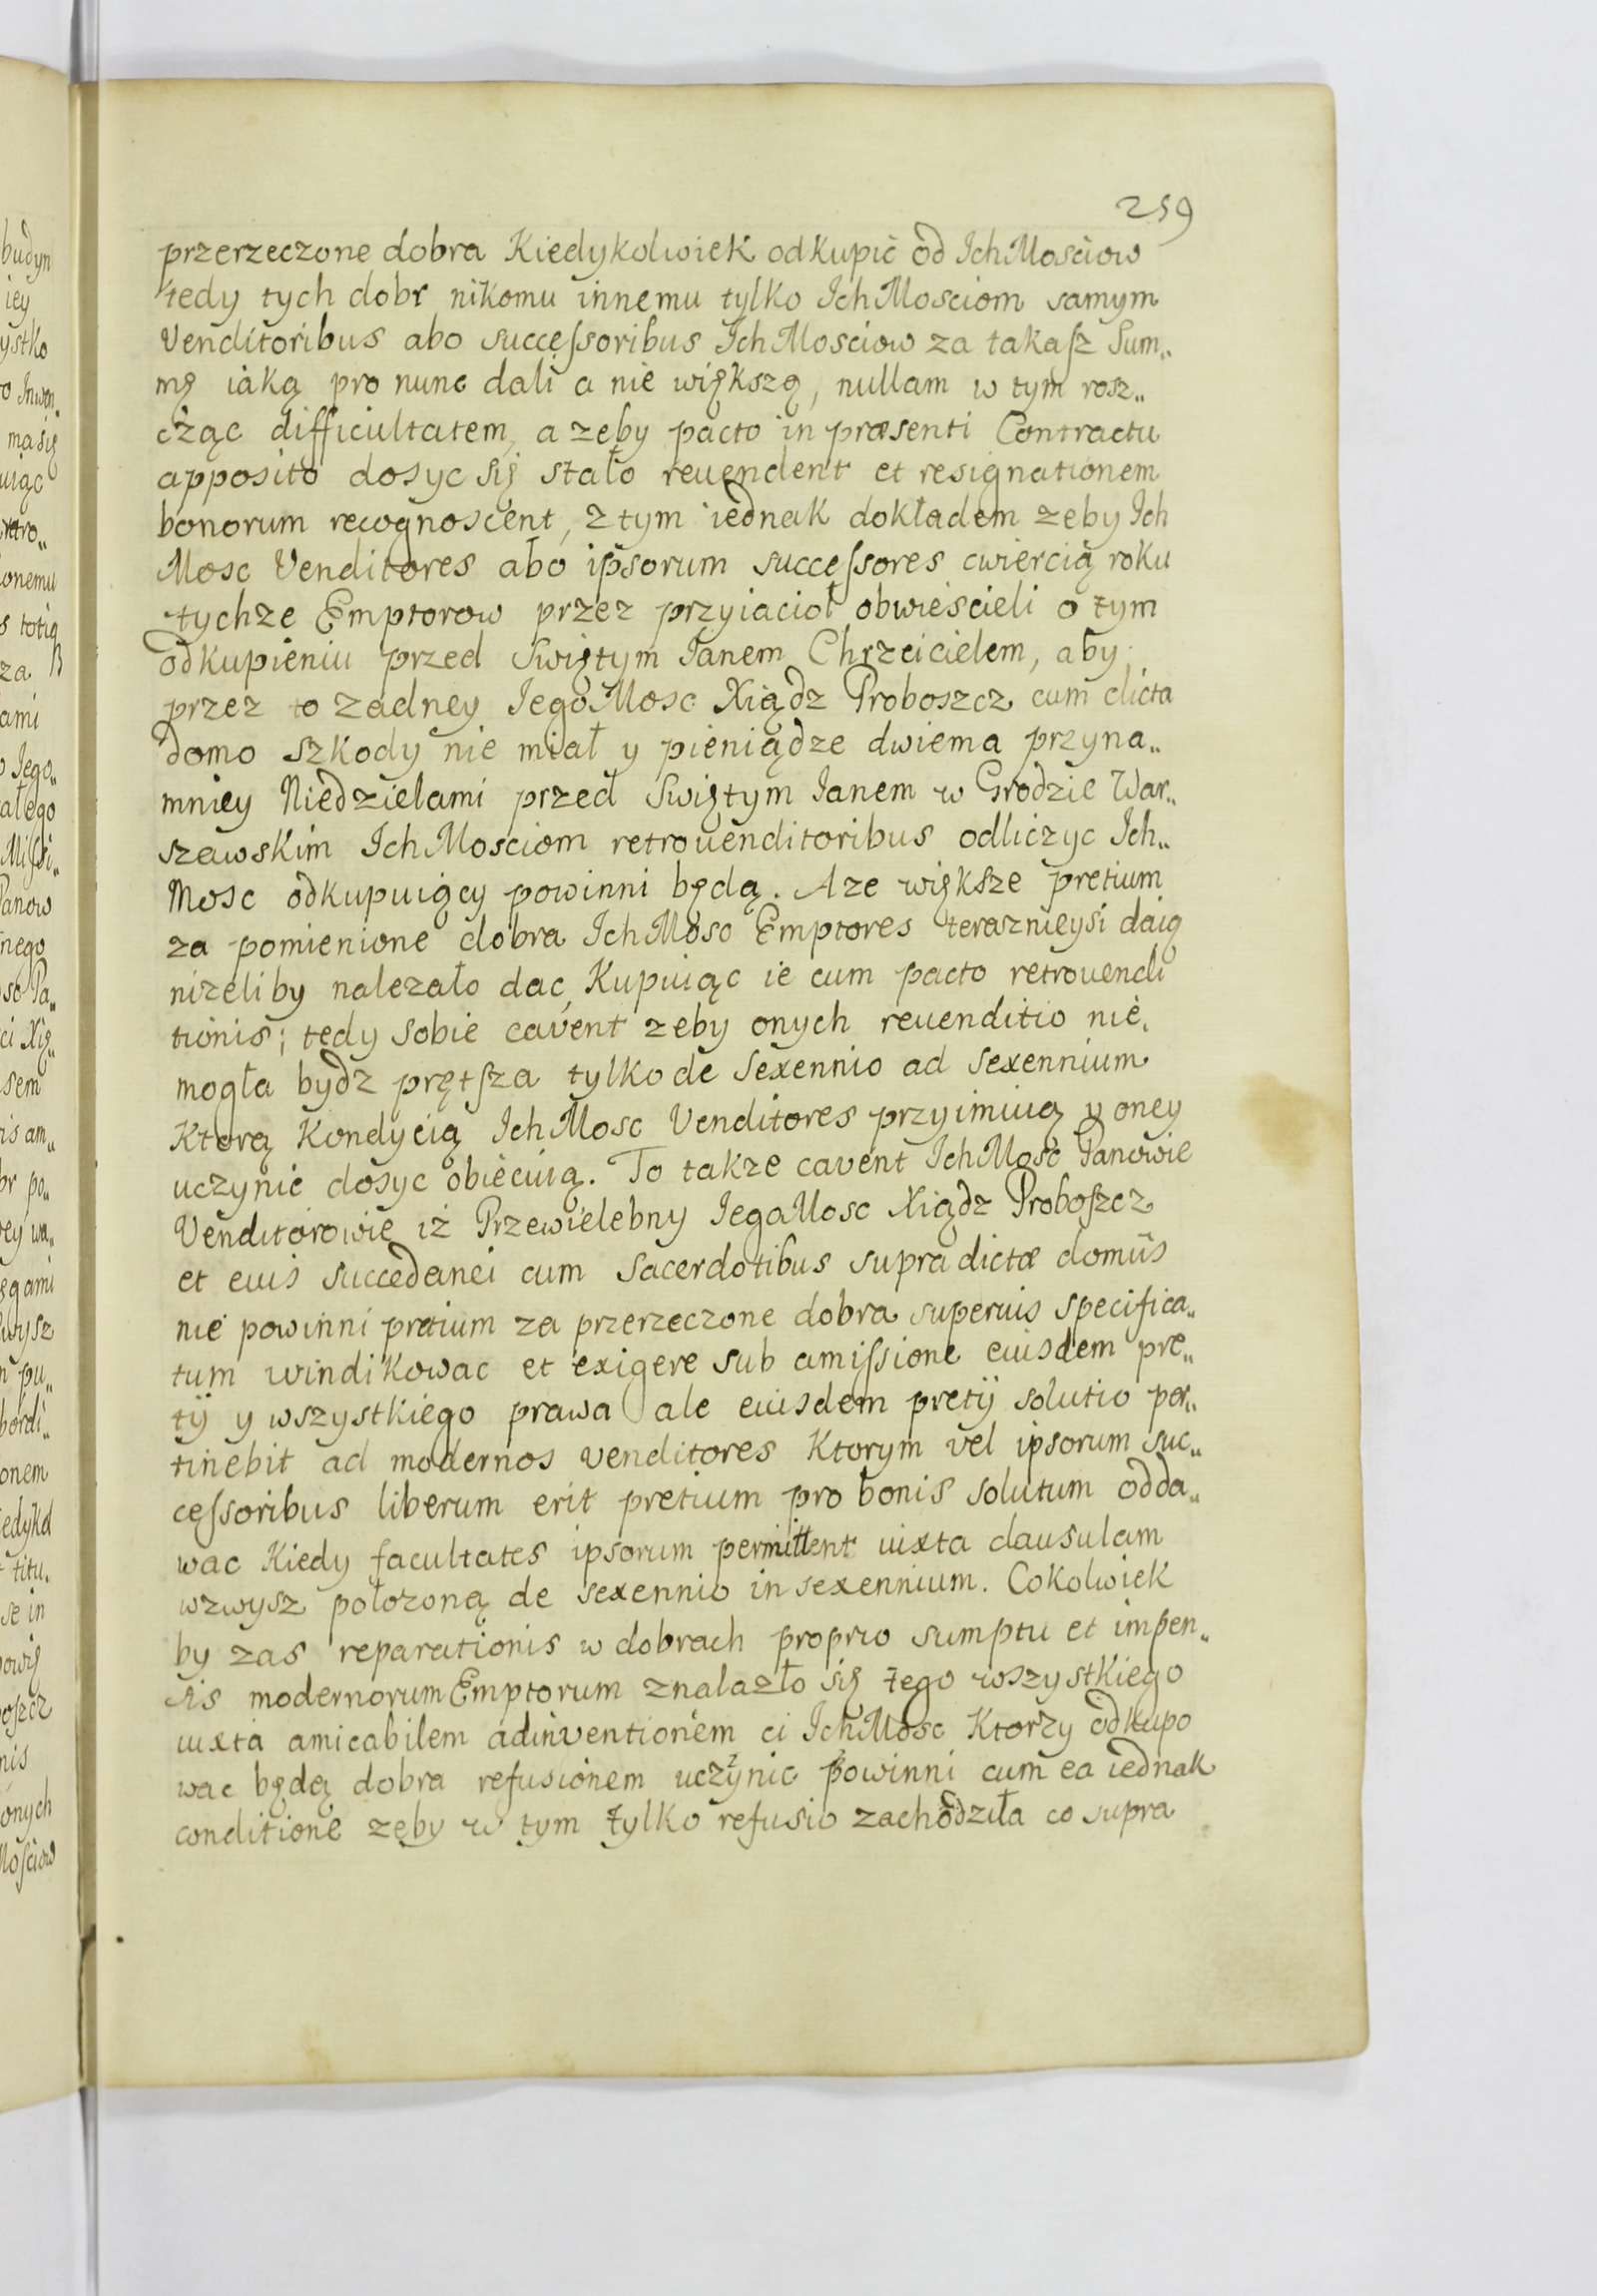 259
przerzeczone dobra Kiedykolwiek odkupić od IchMosciow
tedy tych dobr nikomu innemu tylko IchMosciom samym
Venditoribus abo succeſsoribus IchMosciow za takaſz Sum„
mę iaką pro nunc dali a nie większą, nullam w tym rosz„
cząc difficultatem, a zeby pacto in præsenti Contractu
apposito dosyc się stało reuendent et resignationem
bonorum recognoscent, z tym iednak dokładem zeby Ich
Mosc Venditores abo ipsorum succeſsores cwiercią roku
tychze Emptorow przez przyiacioł obwieścieli o tym
odkupieniu przed Swiętym Ianem Chrzcicielem, aby
przez to zadney IegoMosc Xiądz Proboszcz cum dicta
domo szkody nie miał y pieniądze dwiema przyna„
mniey Niedzielami przed Swiętym Ianem w Grodzie War„
szawskim IchMosciom retrouenditoribus odliczyc Ich„
Mosc odkupuiący powinni będą. Aze większe pretium
za pomienione dobra IchMosc Emptores terasznieysi daią
nizeliby nalezało dac, Kupuiąc ie cum pacto retrouendi
tionis; tedy sobie cavent zeby onych reuenditio nie
mogła bydz prętſza tylko de Sexennio ad sexennium
Ktorą Kondycią IchMosc Venditores przyimuią y oney
uczynić dosyc obiecuią. To takze cavent IchMosc Panowie
Venditorowie iż Przewielebny IegoMosc Xiądz Proboſzcz
et eius succedanei cum Sacerdotibus supra dictæ domûs
nie powinni pretium za przerzeczone dobra superius specifica„
tum windikowac et exigere sub amiſsione eiusdem pre„
tÿ y wszystkiego prawa ale eiusdem pretÿ solutio per„
tinebit ad modernos venditores Ktorym vel ipsorum suc„
ceſsoribus liberum erit pretium pro bonis solutum odda„
wac Kiedy facultates ipsorum permittent iuxta clausulam
wzwysz połozoną de sexennio in sexennium. Cokolwiek
by zas reparationis w dobrach proprio sumptu et impen„
sis modernorum Emptorum znalazło się tego wszystkiego
iuxta amicabilem adinventionem ci IchMosc Ktorzy odkupo
wac będą dobra refusionem uczynic powinni cum ea iednak
conditione zeby w tym tylko refusio zachodziła co supra